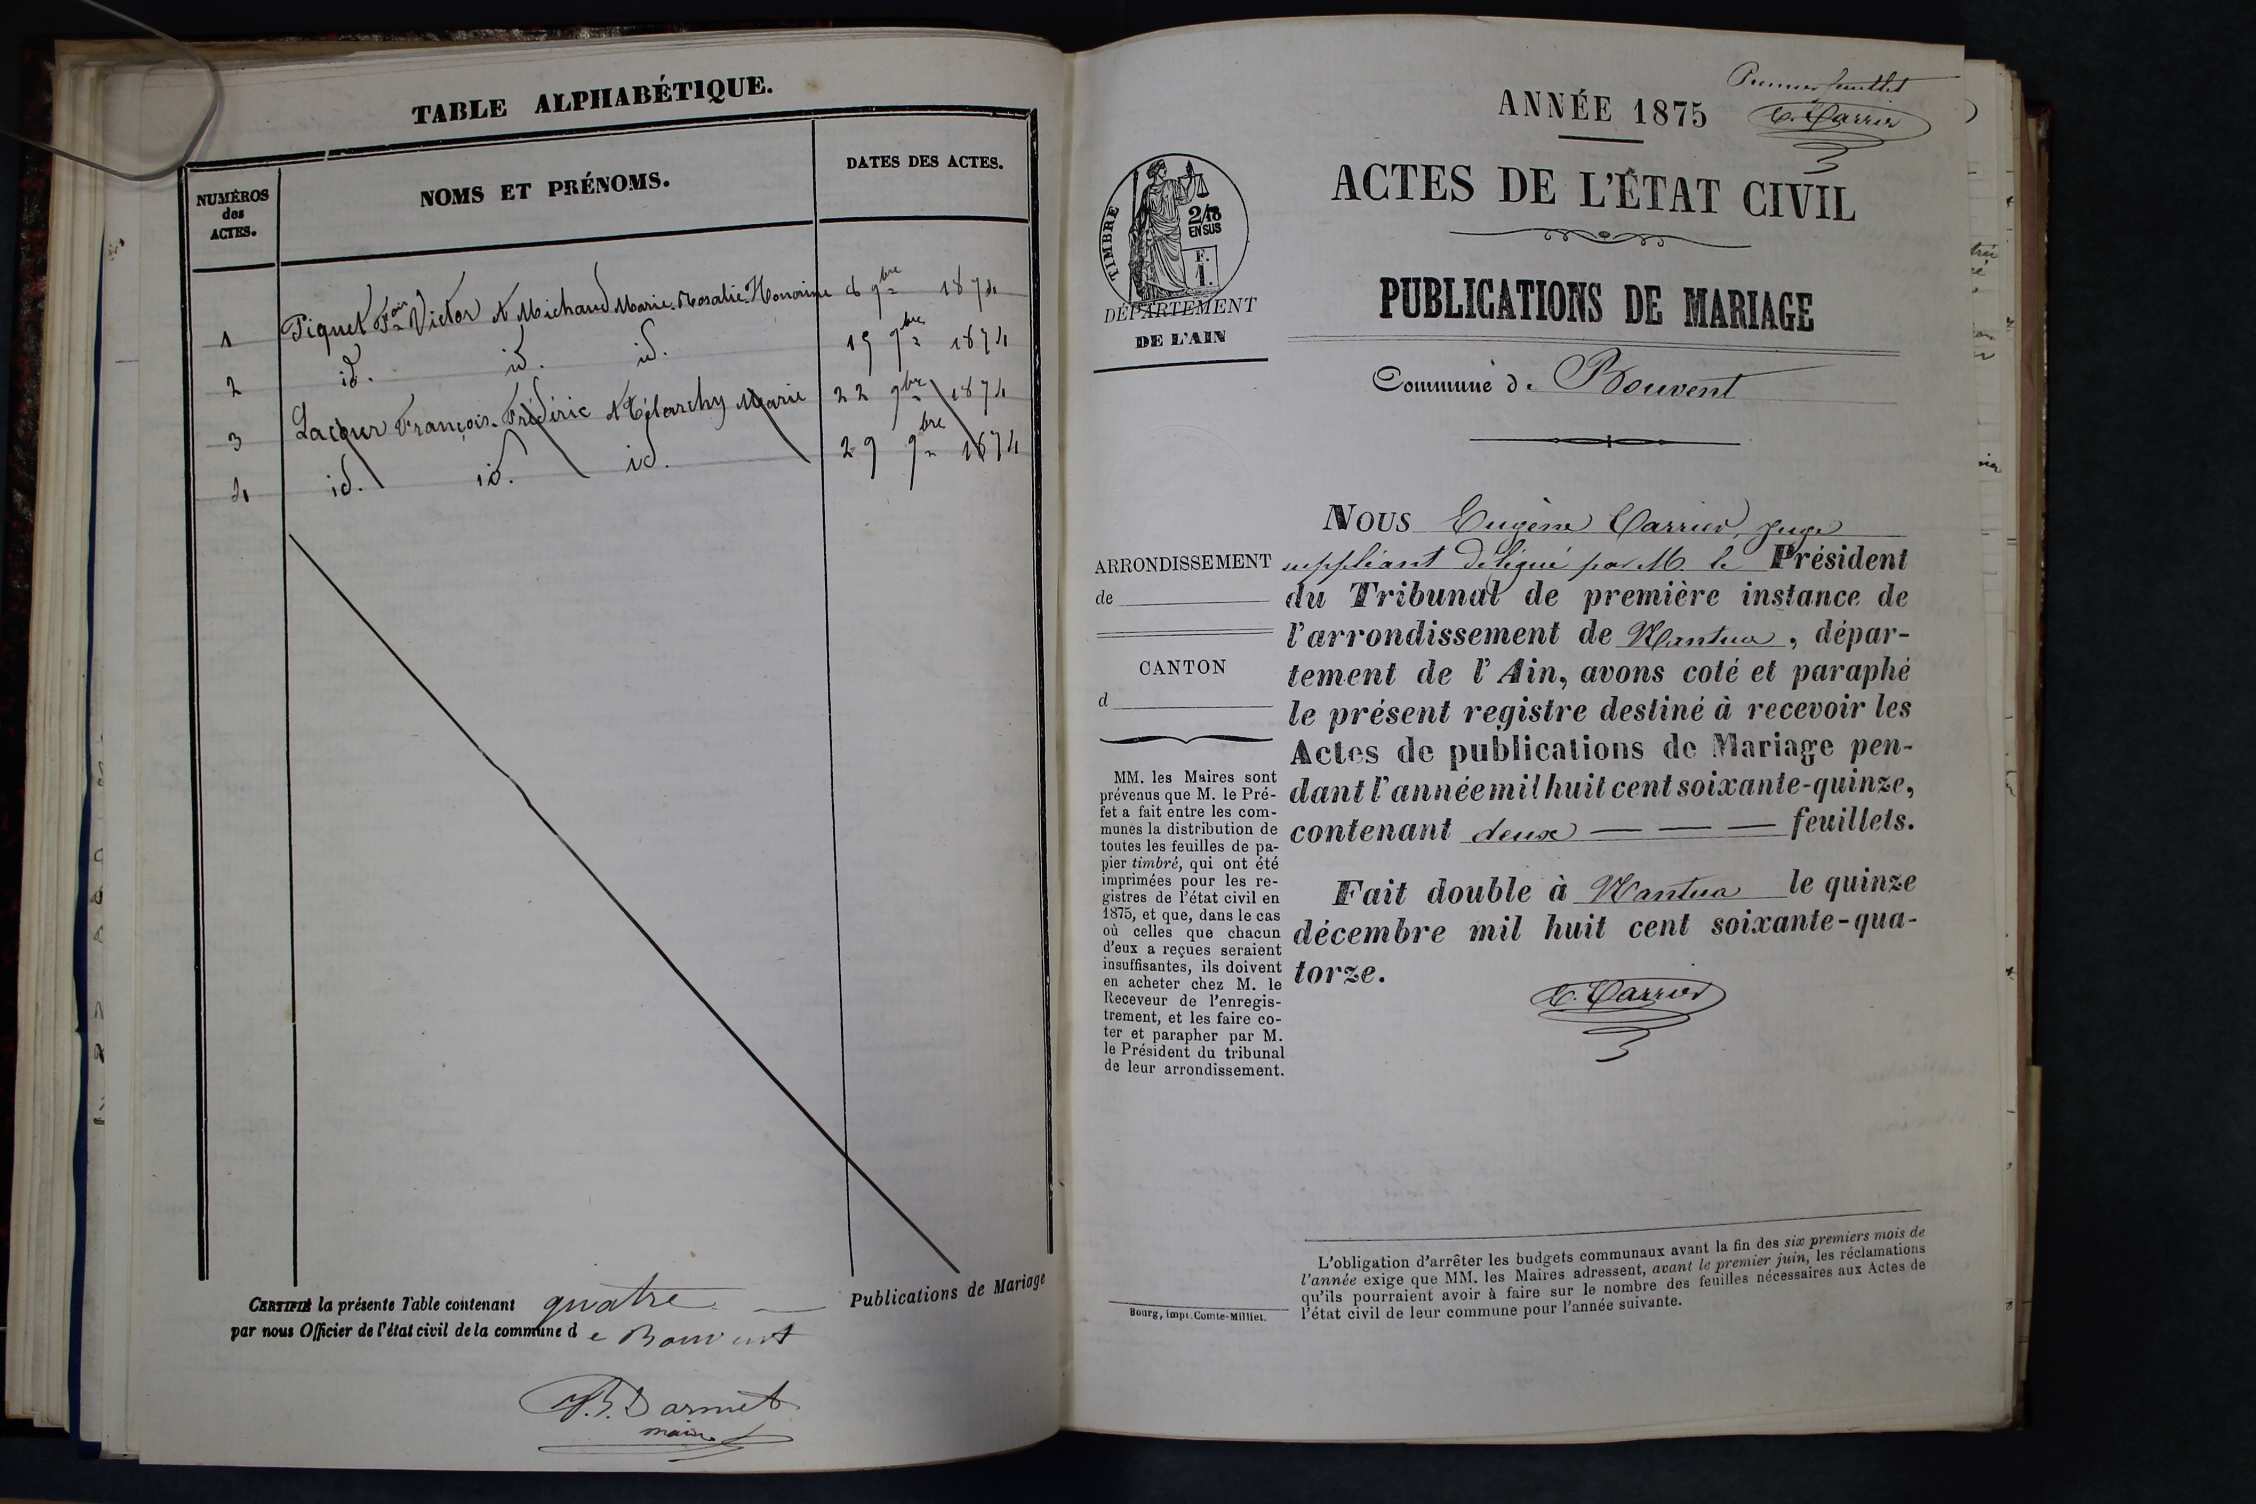 TABLE ALPHABÉTIQUE.
NUMÉROS
des
ACTES.
NOMS ET PRÉNOMS.
DATES DES ACTES.
1 Piquet Fois Victor & Michaud Marie-Rosalie-Honorine 8 9bre 1874
2 id. id. id. 15 9bre 1874
3 Lacour François-Frédéric & Marie 22 9bre 1874
4 id. id. id. 29 9bre 1874
CERTIFIÉ la présente Table contenant quatre — Publications de Mariage
par nous Officier de l'état civil de la commune de Bouvent
Darmet
maire
Premier feuillet
E. Carrier
ANNÉE 1875
ACTES DE L'ÉTAT CIVIL
TIMBRE
2/10
EN SUS
F.
1.
DÉPARTEMENT
DE L'AIN
PUBLICATIONS DE MARIAGE
Commune de Bouvent
ARRONDISSEMENT
de
CANTON
d
MM. les Maires sont
prévenus que M. le Pré-
fet a fait entre les com-
munes la distribution de
toutes les feuilles de pa-
pier timbré, qui ont été
imprimées pour les re-
gistres de l'état civil en
1875, et que, dans le cas
où celles que chacun
d'eux a reçues seraient
insuffisantes, ils doivent
en acheter chez M. le
Receveur de l'enregis-
trement, et les faire co-
ter et parapher par M.
le Président du tribunal
de leur arrondissement.
Bourg, impr. Comte-Milliet.
NOUS Eugène Carrier, juge
suppléant délégué par M. le Président
du Tribunal de première instance de
l'arrondissement de Nantua, dépar-
tement de l'Ain, avons coté et paraphé
le présent registre destiné à recevoir les
Actes de publications de Mariage pen-
dant l'année mil huit cent soixante-quinze,
contenant deux — — — feuillets.
Fait double à Nantua le quinze
décembre mil huit cent soixante-qua-
torze.
E. Carrier
L'obligation d'arrêter les budgets communaux avant la fin des six premiers mois de
l'année exige que MM. les Maires adressent, avant le premier juin, les réclamations
qu'ils pourraient avoir à faire sur le nombre des feuilles nécessaires aux Actes de
l'état civil de leur commune pour l'année suivante.